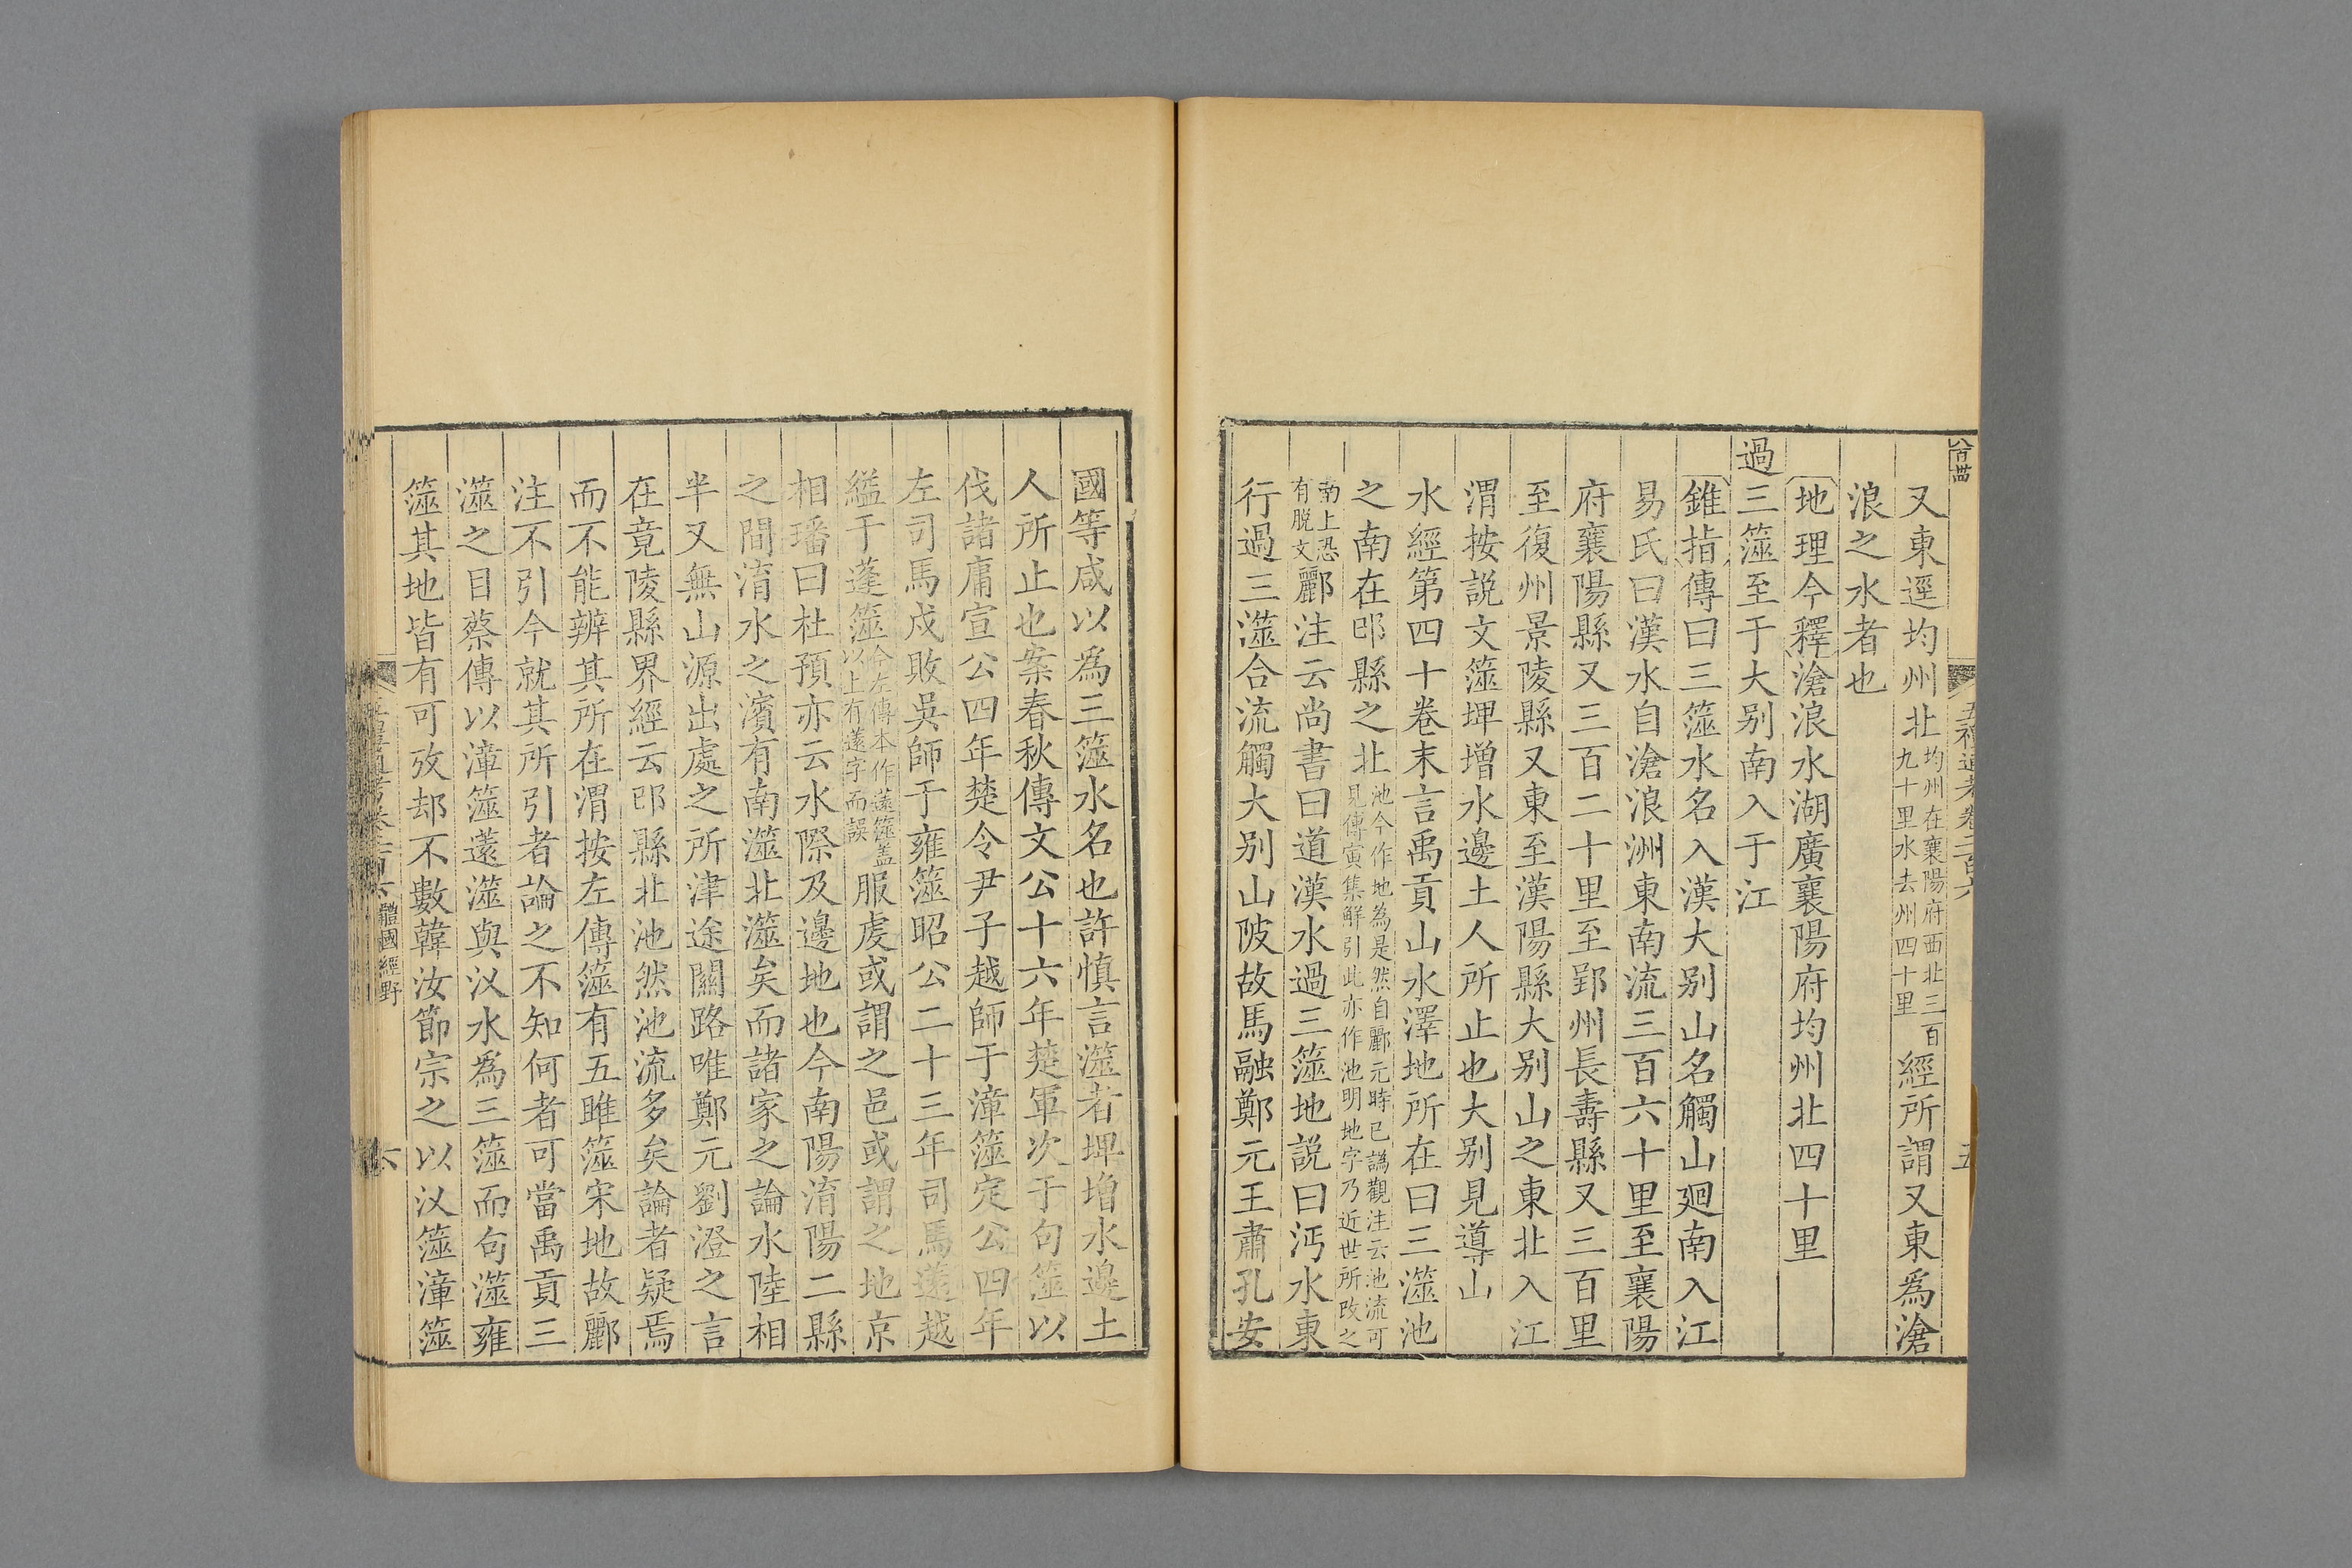 五禮通考卷二百六
五
又東逕均州北均州在襄陽府西北三百九十里水去州四十里經所謂又東爲滄
浪之水者也
地理今釋滄浪水湖廣襄陽府均州北四十里
過三澨至于大别南入于江
錐指傳曰三澨水名入漢大别山名觸山廻南入江
易氏曰漢水自滄浪洲東南流三百六十里至襄陽
府襄陽縣又三百二十里至郢州長壽縣又三百里
至復州景陵縣又東至漢陽縣大别山之東北入江
渭按説文澨埤增水邊土人所止也大别見導山
水經第四十卷末言禹貢山水澤地所在曰三澨池
之南在邔縣之北池今作地為是然自酈元時已譌觀注云池流可見傅寅集解引此亦作池明地字乃近世所改之
南上恐有脱文酈注云尚書曰道漢水過三澨地説曰沔水東
行過三澨合流觸大别山陂故馬融鄭元王肅孔安
國等咸以爲三澨水名也許慎言澨者埤增水邊土
人所止也案春秋傳文公十六年楚軍次于句澨以
伐諸庸宣公四年楚令尹子越師于漳澨定公四年
左司馬戌敗吳師于雍澨昭公二十三年司馬薳越
縊于蓬澨今左傳本作薳澨蓋以上有薳字而誤服虔或謂之邑或謂之地京
相璠曰杜預亦云水際及邊地也今南陽淯陽二縣
之間淯水之濱有南澨北澨矣而諸家之論水陸相
半又無山源出處之所津途關路唯鄭元劉澄之言
在竟陵縣界經云邔縣北池然池流多矣論者疑焉
而不能辨其所在渭按左傳澨有五雎澨宋地故酈
注不引今就其所引者論之不知何者可當禹貢三
澨之目蔡傳以漳澨薳澨與汊水爲三澨而句澨雍
澨其地皆有可攷却不數韓汝節宗之以汊澨漳澨
體國經野
六